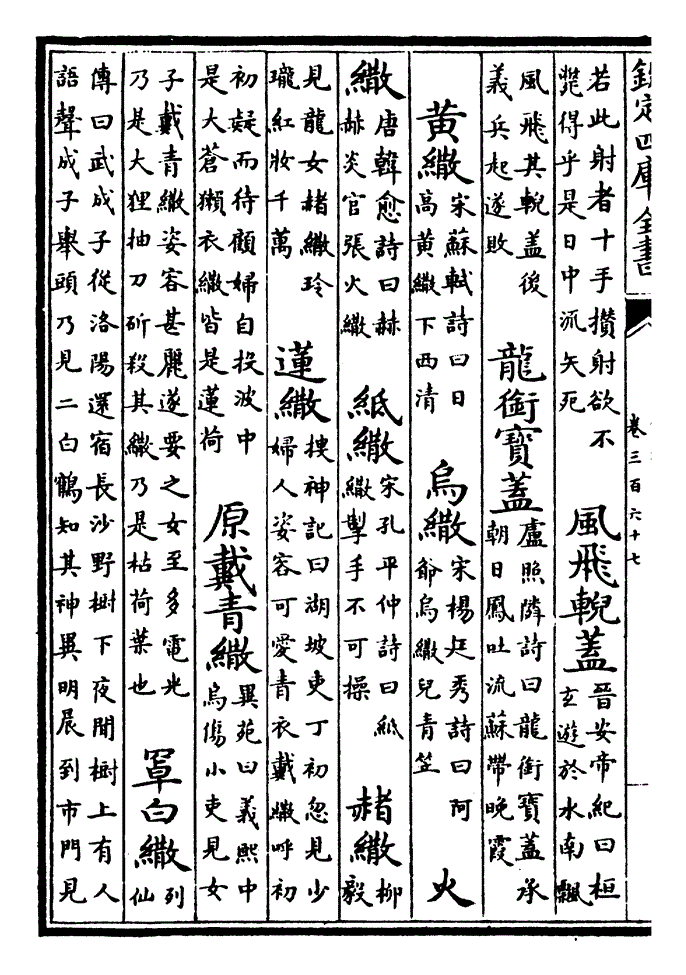 欽定四庫全書 卷三百六十七
若此射者十手攅射欲不
斃得乎是日中流矢死
風飛輗蓋
晉安帝紀曰桓
玄遊於水南飄
風飛其輗盖後
義兵起遂敗
龍銜寶蓋
盧照隣詩曰龍銜寶蓋承
朝日鳳吐流蘇帶晚霞
黄繖
宋蘇軾詩曰日
高黄繖下西清
烏繖
宋楊廷秀詩曰阿
爺烏繖兒青笠
火
繖
唐韓愈詩曰赫
赫炎官張火繖
紙繖
宋孔平仲詩曰紙
繖掣手不可操
赭繖
柳
毅
見龍女赭繖玲
瓏紅妝千萬
蓮繖
搜神記曰湖坡吏丁初忽見少
婦人姿容可愛青衣戴繖呼初
初疑而待顧婦自投波中
是大蒼獺衣繖皆是蓮荷
原戴青繖
異苑曰義熙中
烏傷小吏見女
子戴青繖姿容甚麗遂要之女至多電光
乃是大狸抽刀斫殺其繖乃是枯荷葉也
罩白繖
列
仙
傳曰武成子從洛陽還宿長沙野樹下夜聞樹上有人
語聲成子舉頭乃見二白鶴知其神異明晨到市門見